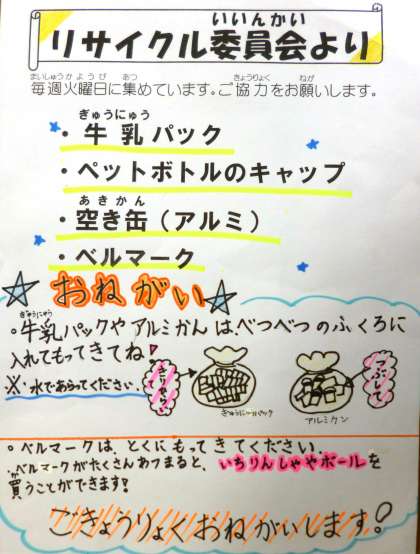 いいんかい
リサイクル委員会より
まいしゅうかようび あつ きょうりょく ねが
毎週火曜日に集めています。ご協力をお願いします。
ぎゅうにゅう
・牛乳パック
・ペットボトルのキャップ
あきかん
・空き缶(アルミ)
・ベルマーク
おねがい
ぎゅうにゅう
◦牛乳パックやアルミかんは、べつべつのふくろに
入れてもってきてね!
※水であらってください.
きりひらいて
つぶして
ぎゅうにゅうパック
アルミカン
◦ベルマークは、とくにもってきてください.
◦ベルマークがたくさんあつまると、いちりんしゃやボールを
か
買うことができます!
ごきょうりょくおねがいします!